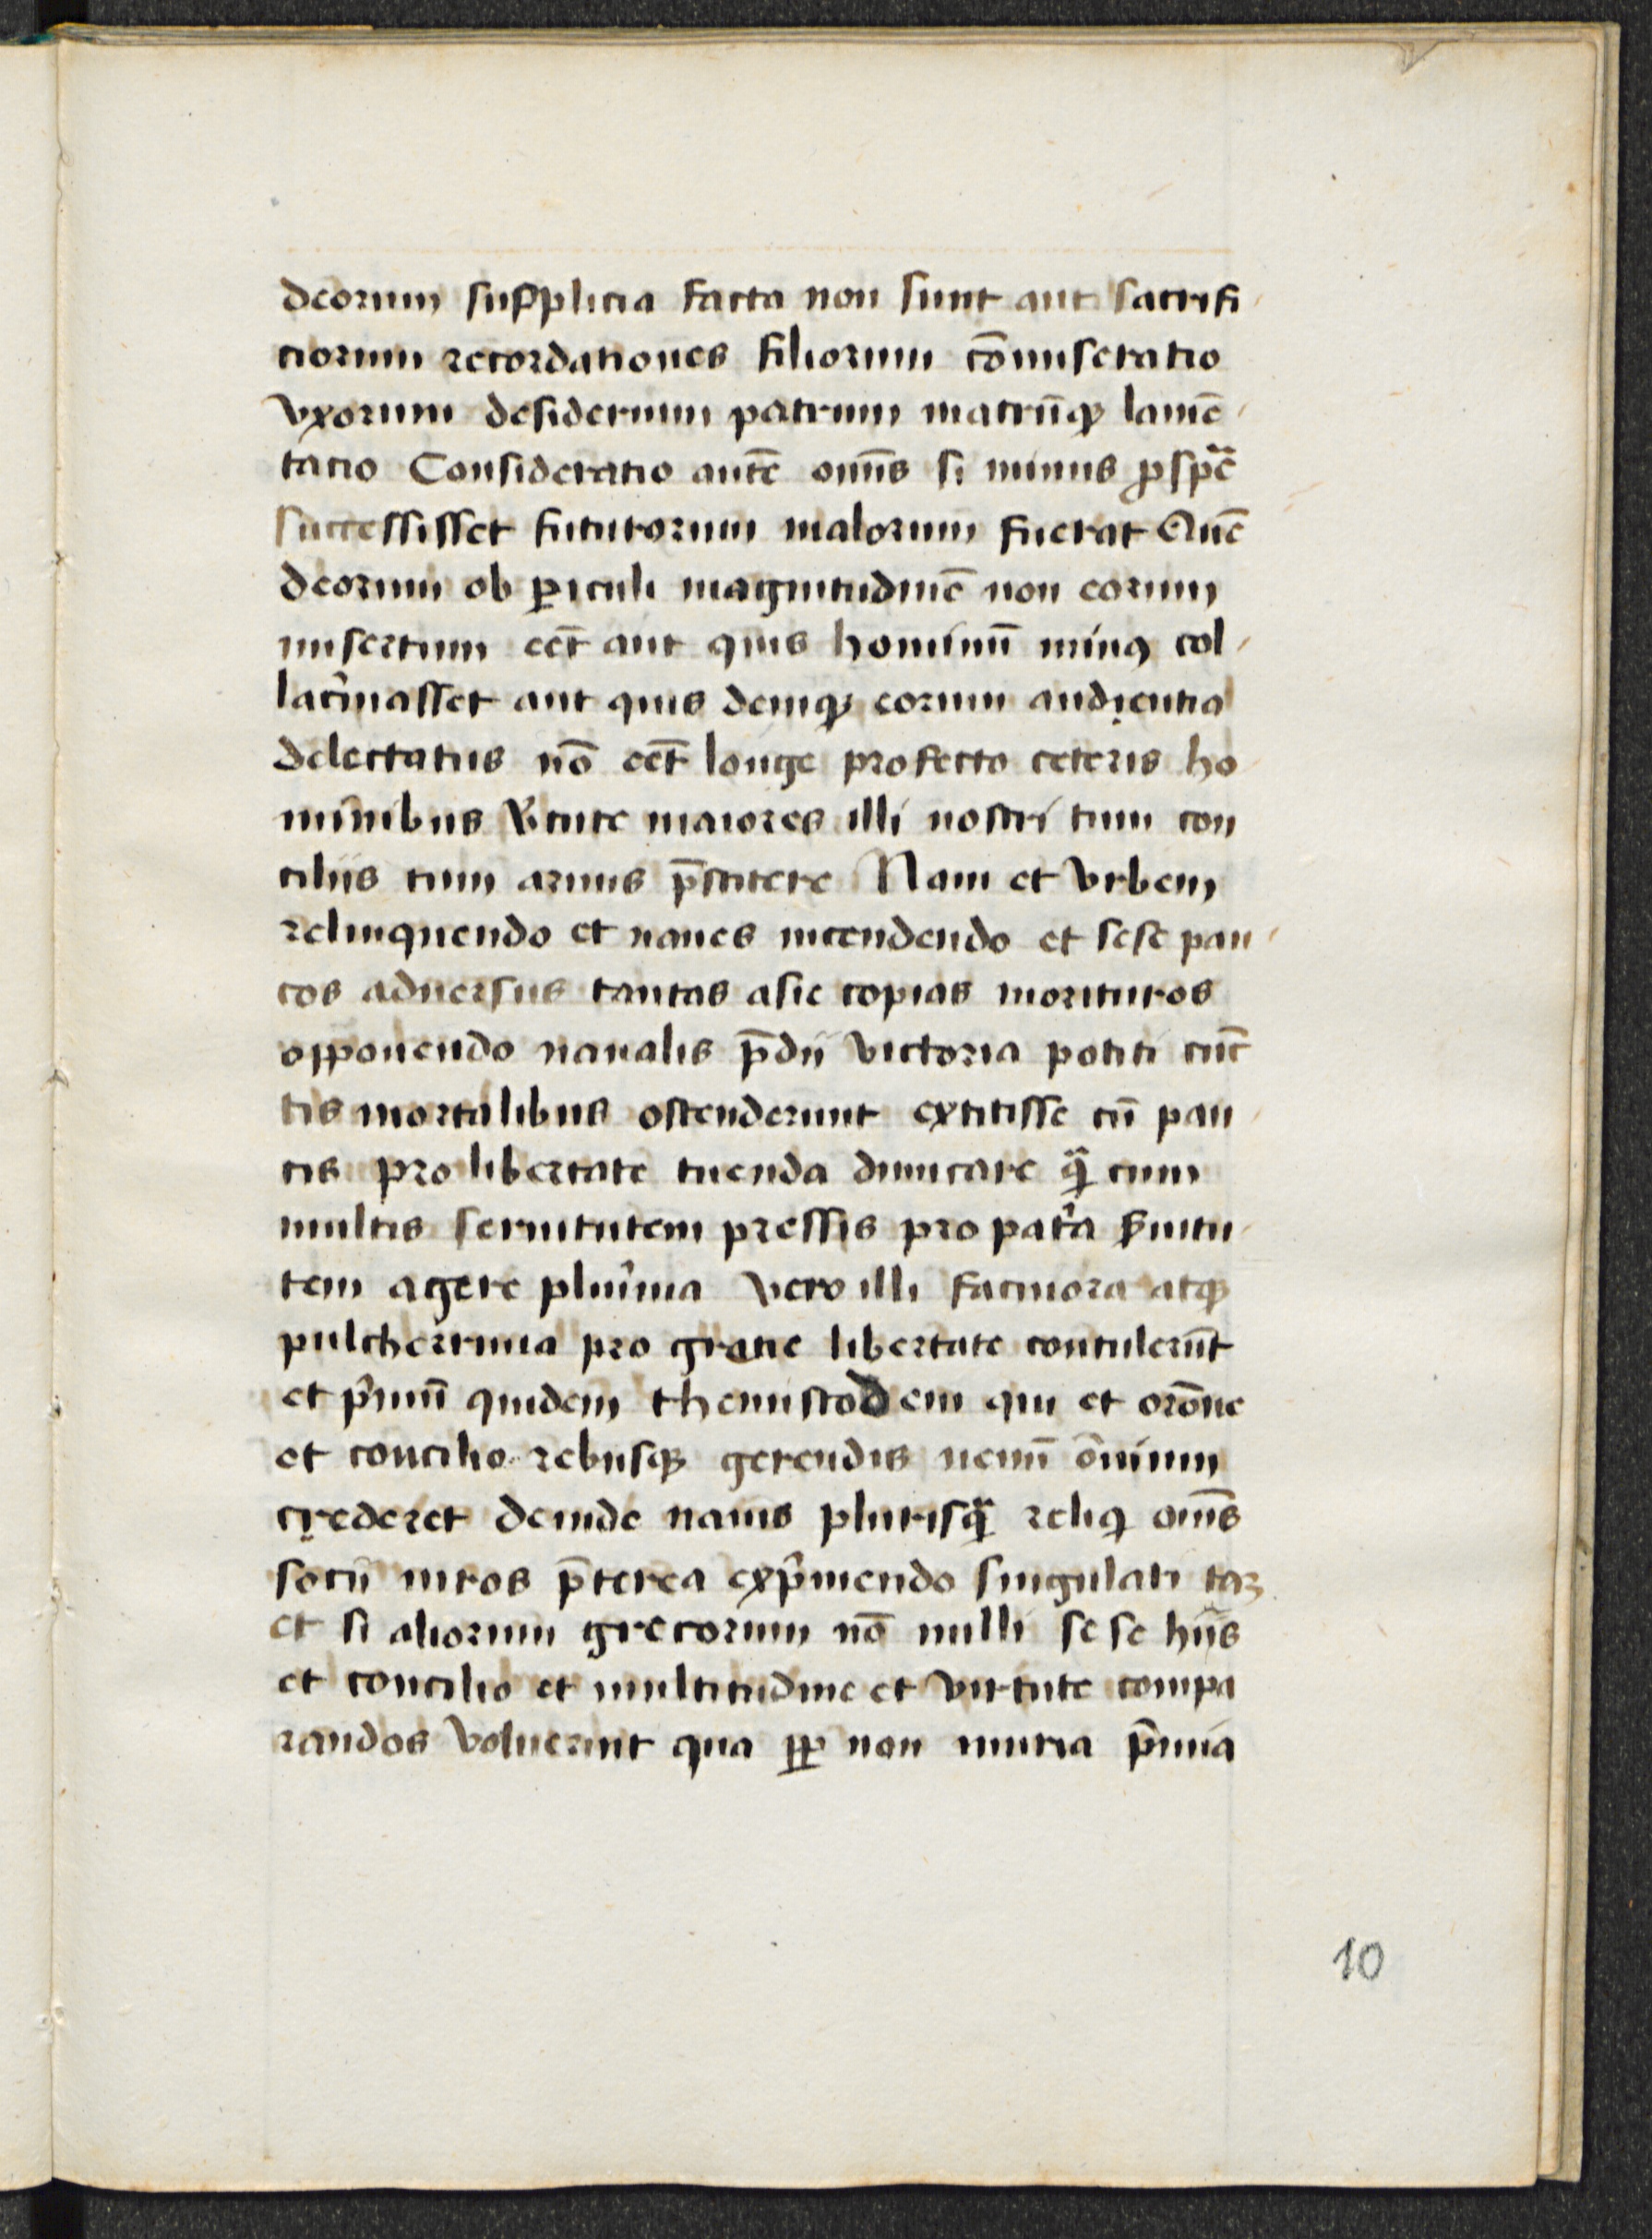 deorum supplicia facta non sunt aut sacrifi-
ciorum recordationes filiorum cōmiseratio
vxorum desiderium patrum matrūqꝫ lamē-
tatio Consideratio autē omīs si minus ꝓspē
successisset futurorum malorum fuerat Quē
deorum ob ꝑiculi magnitudinē non eorum
misertum eēt aut quis hominū minꝰ col-
lacͥmasset aut quis deniqꝫ eorum audientia
delectatus nō eēt longe profecto ceteris ho
minibus v̓tute maiores illi nostri tum con
ciliis tum armis p̄stitere Nam et vrbem
relinquendo et naues incendendo et sese pau-
cos aduersus tantas asie copias morituros
opponendo naualis p̄dii victoria potiti cūc
tis mortalibus ostenderunt extitisse cū pau-
cis pro libertate tuenda dimicare qᷓ cum
multis seruitutem pressis pro patͥa ẜuitu-
tem agere plurͥma vero illi facinora atqꝫ
pulcherrima pro gratie libertate contulerūt
et pͥmū quidem themistodem qui et orōne
et concilio rebusqꝫ gerendis nemī om̄ium
crederet deinde nauis plurisqᷓ reliqͥ omīs
socii niros p̄terea expͥmendo singulari
et si aliorum grecorum nō nulli se se hiis
et concilio et multitudine et virtute compa
randos voluerint qua non p̄mia
10